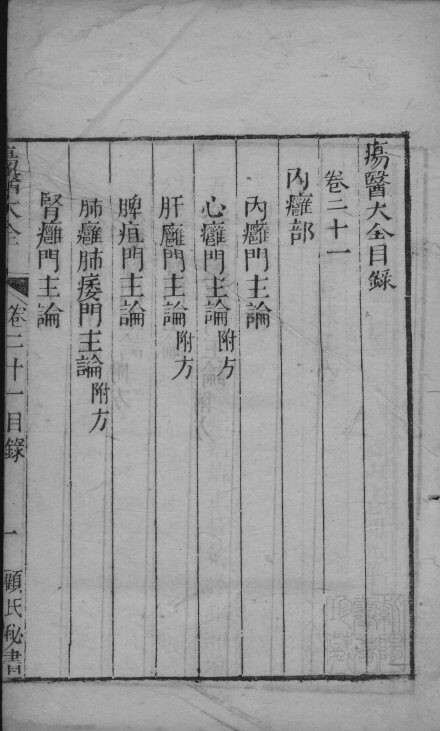 瘍醫大全目錄
卷二十一
內癰部
內癰門主論
心癰門主論附方
肝癰門主論附方
脾疽門主論
肺癰肺痿門主論附方
腎癰門主論
瘍醫大全
卷二十一目錄
一
顧氏秘書